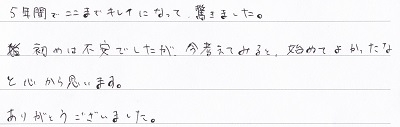 5年間でここまでキレイになって、驚きました。
初めは不安でしたが、今考えてみると、始めてよかったな
と心から思います。
ありがとうございました。